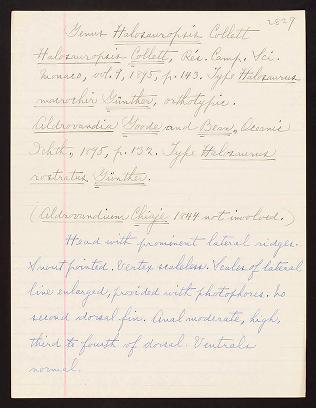 2829
Genus Halosauropsis Collett
Halosauropsis Collett, Rés. Camp. Sci.
Monaco, vol. 9, 1895, p. 143. Type Halosaurus
macrochir Günther, orthotypic.
Aldrovandia Goode and Bean, Oceanic
Ichth., 1895, p. 132. Type Halosaurus
rostratus Günther.
(Aldrovandium 1844 not involved.)
Head with prominent lateral ridges.
Snout pointed. Vertex scaleless. Scales of lateral
line enlarged, provided with photophores. No
second dorsal fin. Anal moderate, high,
third to fourth of dorsal. Ventrals
normal.